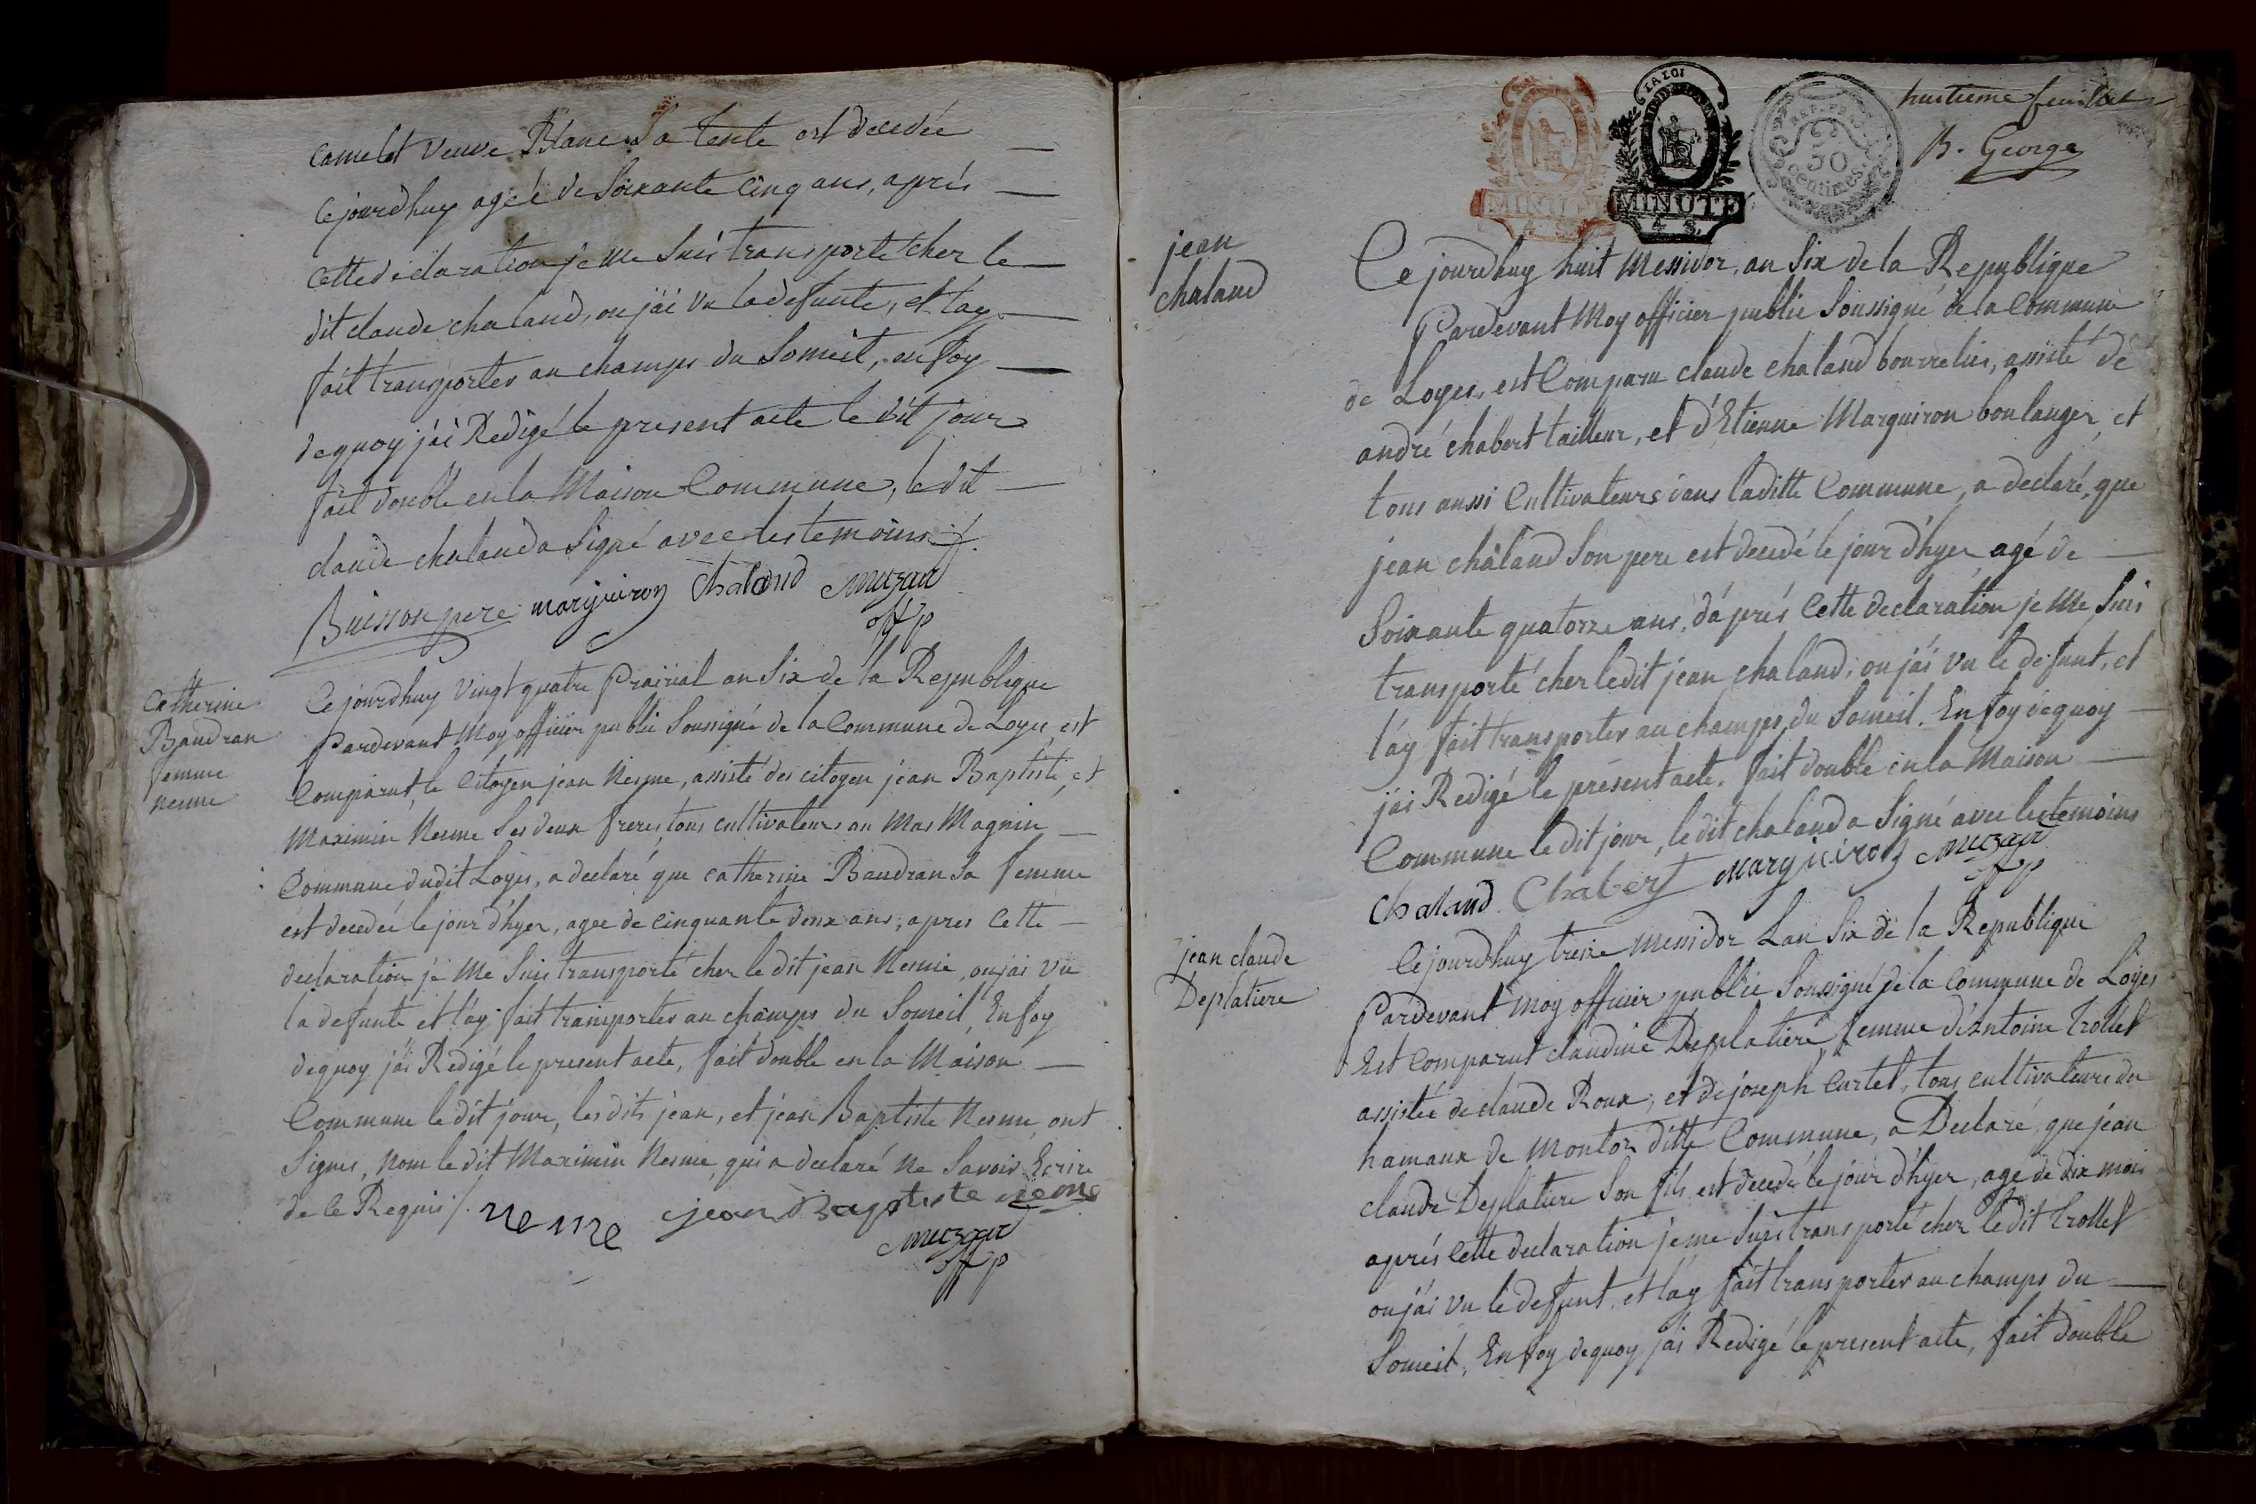 camelot veuve Blanc Sa tente est decedée
Cejourdhuy agéé de Soixante Cinq ans, aprés
Cette déclaration je me Suis transporte cher le
dit claude chaland, ou jài vu la defunte, et lay
fait transporter au champs du Someil, en foy
dequoy jài Redigé le present acte le dit jour
fait double en la Maison Commune, le dit
claude chaland a Signé avec les temoins ./.
Buisson pere marguiron Chaland muzard
off p
Catherine
Baudran
femme
nesme
Cejourdhuy Vingt quatre Prairial an Six de la Republique
Pardevant Moy officier public Soussigné de la Commune de Loyes est
Comparut, le Citoyen jean Nesme, assisté des citoyen jean Baptiste, et
Maximin Nesme Ses deux freres, tous cultivateurs au Mas Magnin
Commune dudit Loyes, a declaré que catherine Baudran Sa femme
est decedéé le jour d'hyer, agee de cinquante deux ans, apres Cette
declaration je Me Suis transporté cher le dit jean Nesme, ou jai vu
la defunte et l'ay fait transporter au champs du Someil, En foy
dequoy jài Redigé le present acte, fait double en la Maison
Commune le dit jour, les dits jean, et jean Baptiste Nesme, ont
Signes, Nom le dit Maximin Nesme, qui a declaré Ne Savoir Ecrire
de Ce Requis /. neme jean Baptiste neme
muzard
off p
huitieme feuillet
B. George
MINUTE
MINUTE
50
centimes
jean
chaland
Ce jourdhuy huit Messidor, an Six de la Republique
Pardevant Moy officier public Soussigné de la Commune
de Loyes, est Comparu claude chaland bourrelier, assisté de
andré chabert tailleur, et d'Etienne Marguiron boulanger, et
tous aussi Cultivateurs dans laditte Commune, a declaré, que
jean châland Son pere est decedé le jour d'hyer, agé de
Soixante quatorze ans, d'aprés Cette declaration je Me Suis
transporté cher ledit jean chaland, ou jài vu le defunt, et
l'ay fait transporter au champs du Someil. En foy dequoy
jài Redigé le présent acte. fait double en la Maison
Commune le dit jour, le dit chaland a Signé avec les temoins
Chaland Chabert marguiron muzard
off p
jean claude
Deplatiere
Cejourdhuy treize Messidor Lan Six de la Republique
Pardevant Moy officier public Soussigné de la Commune de Loyes
Est Comparut claudine Deplatiere, femme d'Antoine Trollet
assistée de claude Roux, et de joseph Curtet, tous cultivateurs du
hamaux de Montor ditte Commune, a Declaré, que jean
claude Deplatiere Son fils, est decedé le jour d'hyer, age de dix mois
aprés Cette declaration je me Suis transporté cher le dit Trollet
ou jài vu le defunt, et l'ay fait transporter au champs du
Someil, En foy dequoy jài Redigé le present acte, fait double